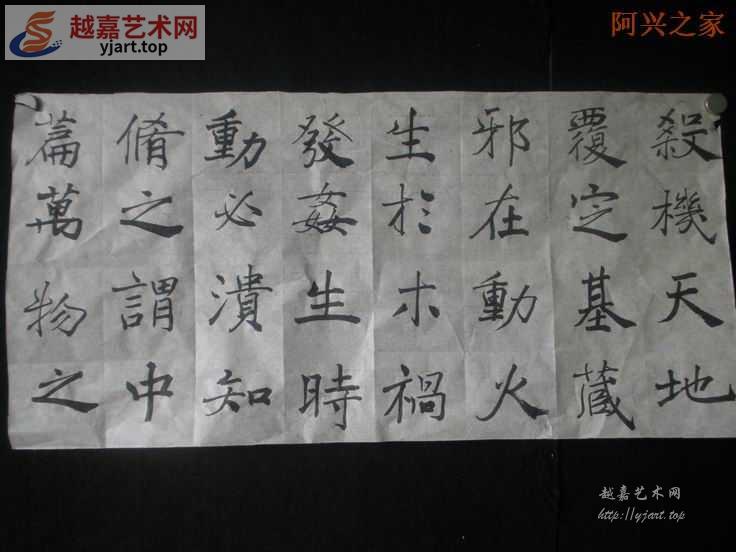 越嘉艺术网
yjart.top
阿兴之家
殺機天地
覆定基藏
邪在動火
生於木禍
發姦生時
動必潰知
脩之謂中
篇萬物之
越嘉艺术网
http://yjart.top